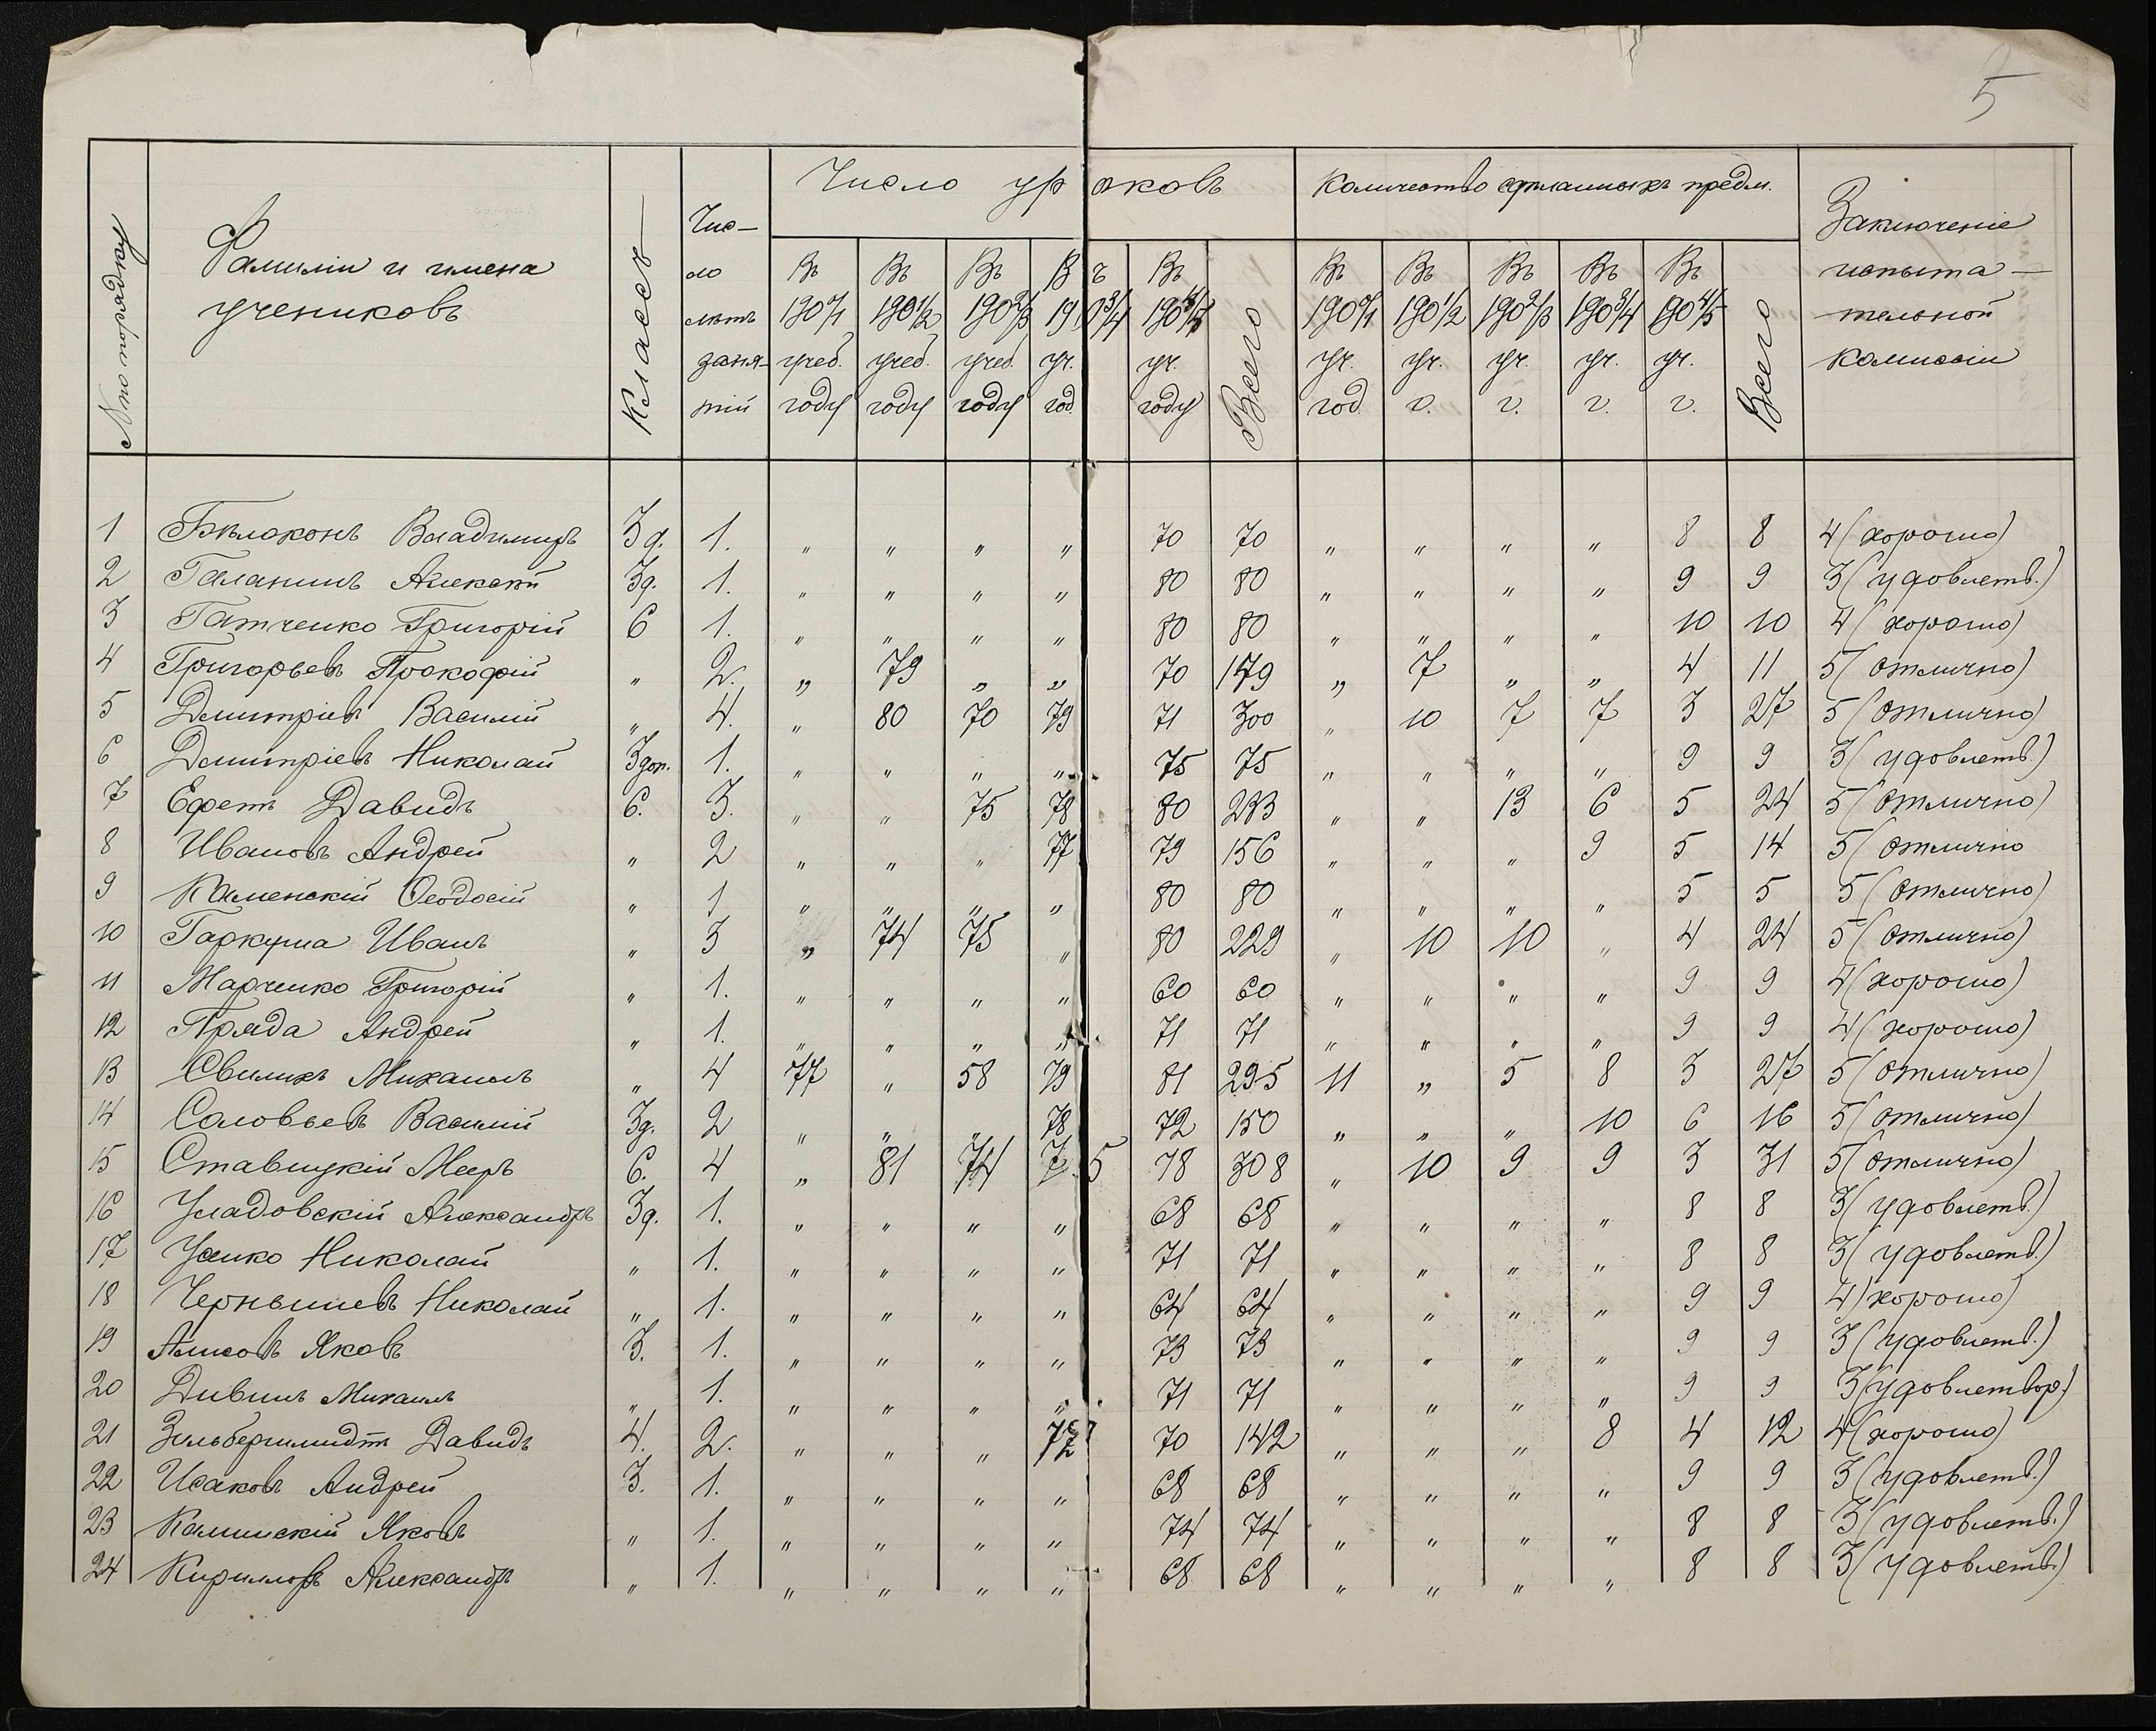 5
№ по порядку
Фамиліи и имена учениковъ
Классъ
Число лѣтъ занятій
Число уроковъ
Въ 190 0/1 учеб. году
Въ 190 1/2 учеб. году
Въ 190 2/3 учеб. году
Въ 190 3/4 уч. год.
Въ 190 4/5 уч. году
Всего
Количество сдѣланныхъ предм.
Въ 190 0/1 уч. год.
Въ 190 1/2 уч. г.
Въ 190 2/3 уч. г.
Въ 190 3/4 уч. г.
Въ 190 4/5 уч. г.
Всего
Заключеніе испытательной комиссіи
1 Бѣлоконъ Владимиръ 3 д. 1. „ „ „ „ 70 70 „ „ „ „ 8 8 4 (хорошо)
2 Галанинъ Алексѣй 3д. 1. „ „ „ „ 80 80 „ „ „ „ 9 9 3 (удовлетв.)
3 Гатченко Григорій 6 1. „ „ „ „ 80 80 „ „ „ „ 10 10 4 (хорошо)
4 Григорьевъ Прокофій „ 2. „ 79 „ „ 70 149 „ 7 „ „ 4 11 5 (отлично)
5 Дмитріевъ Василій „ 4. „ 80 70 79 71 300 „ 10 7 7 3 27 5 (отлично)
6 Дмитріевъ Николай 3доп. 1. „ „ „ „ 75 75 „ „ „ „ 9 9 3 (удовлетв.)
7 Ефетъ Давидъ 6. 3. „ „ 75 78 80 233 „ „ 13 6 5 24 5 (отлично)
8 Ивановъ Андрей „ 2 „ „ „ 77 79 156 „ „ „ 9 5 14 5 (отлично
9 Каменскій Ѳеодосій „ 1 „ „ „ „ 80 80 „ „ „ „ 5 5 5 (отлично)
10 Гаркуша Иванъ „ 3 „ 74 75 „ 80 229 „ 10 10 „ 4 24 5 (отлично)
11 Марченко Григорій „ 1. „ „ „ „ 60 60 „ „ „ „ 9 9 4 (хорошо)
12 Пряда Андрей „ 1. „ „ „ „ 71 71 „ „ „ „ 9 9 4 (хорошо)
13 Свилихъ Михаилъ „ 4 77 „ 58 79 81 295 11 „ 5 8 3 27 5 (отлично)
14 Соловьевъ Василій 3д. 2 „ „ „ 78 72 150 „ „ „ 10 6 16 5 (отлично)
15 Ставицкій Мееръ 6. 4 „ 81 74 75 78 308 „ 10 9 9 3 31 5 (отлично)
16 Уладовскій Александръ 3д. 1. „ „ „ „ 68 68 „ „ „ „ 8 8 3 (удовлетв.)
17 Николай „ 1. „ „ „ „ 71 71 „ „ „ „ 8 8 3 (удовлетв.)
18 Чернышевъ Николай „ 1. „ „ „ „ 64 64 „ „ „ „ 9 9 4 (хорошо)
19 Алисовъ Яковъ 3. 1. „ „ „ „ 73 73 „ „ „ „ 9 9 3 (удовлетв.)
20 Дивинъ Михаилъ „ 1. „ „ „ „ 71 71 „ „ „ „ 9 9 3 (удовлетвор.)
21 Зильбершмидтъ Давидъ 4. 2. „ „ „ 72 70 142 „ „ „ 8 4 12 4 (хорошо)
22 Исаковъ Андрей 3. 1. „ „ „ „ 68 68 „ „ „ „ 9 9 3 (удовлетв.)
23 Каминскій Яковъ „ 1. „ „ „ „ 74 74 „ „ „ „ 8 8 3 (удовлетв.)
24 Кирилловъ Александръ „ 1. „ „ „ „ 68 68 „ „ „ „ 8 8 3 (удовлетв.)